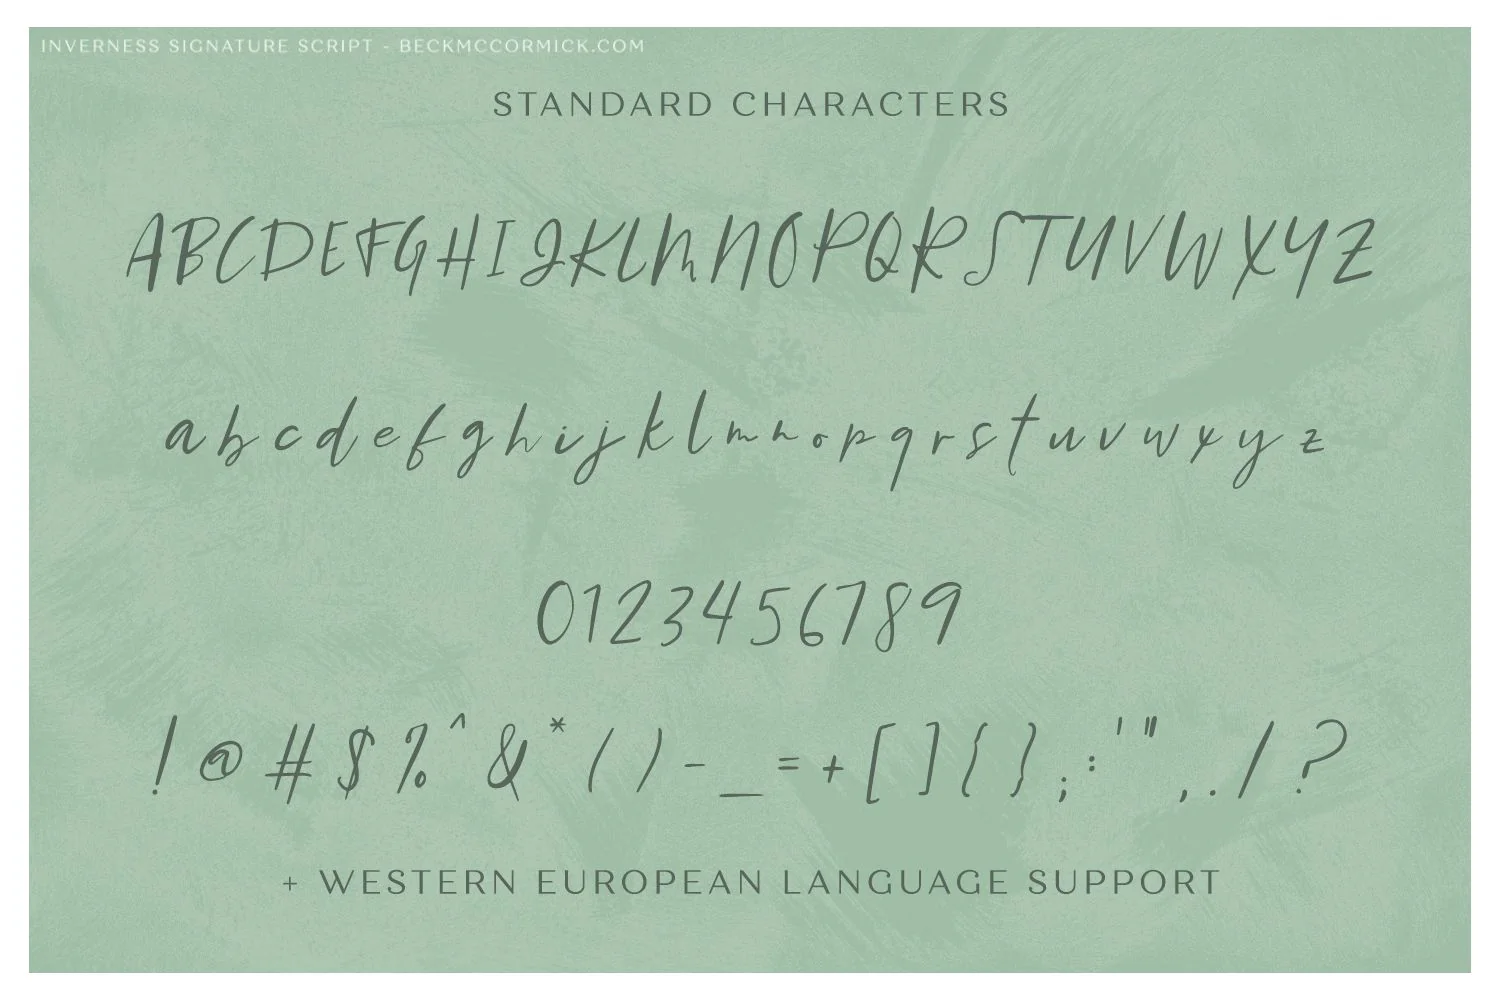 INVERNESS SIGNATURE SCRIPT - BECKMCCORMICK.COM
STANDARD CHARACTERS
ABCDEFGHIJKLMNOPQRSTUVWXYZ
a b c d e f g h i j k l m n o p q r s t u v w x y z
0123456789
! @ # $ % ^ & * ( ) - _ = + [ ] { } ; : ' " , . / ?
+ WESTERN EUROPEAN LANGUAGE SUPPORT